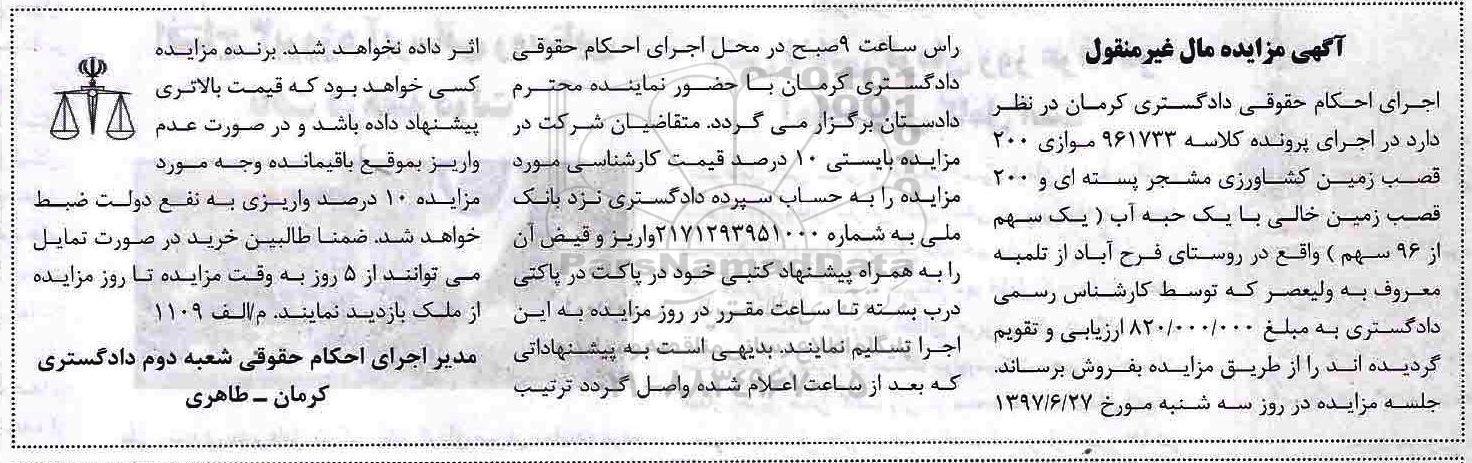 آگهی مزایده مال غیرمنقول
اجرای احکام حقوقی دادگستری کرمان در نظر
دارد در اجرای پرونده کلاسه ۹۶۱۷۳۳ موازی ۲۰۰
قصب زمین کشاورزی مشجر پسته ای و ۲۰۰
قصب زمین خالی با یک حبه آب ( یک سهم
از ۹۶ سهم ) واقع در روستای فرح آباد از تلمبه
معروف به ولیعصر که توسط کارشناس رسمی
دادگستری به مبلغ ۸۲۰/۰۰۰/۰۰۰ ارزیابی و تقویم
گردیده اند را از طریق مزایده بفروش برساند.
جلسه مزایده در روز سه شنبه مورخ ۱۳۹۷/۶/۲۷
راس ساعت ۹صبح در محل اجرای احکام حقوقی
دادگستری کرمان با حضور نماینده محترم
دادستان برگزار می گردد. متقاضیان شرکت در
مزایده بایستی ۱۰ درصد قیمت کارشناسی مورد
مزایده را به حساب سپرده دادگستری نزد بانک
ملی به شماره ۲۱۷۱۲۹۳۹۵۱۰۰۰واریز و قیض آن
را به همراه پیشنهاد کتبی خود در پاکت در پاکتی
درب بسته تا ساعت مقرر در روز مزایده به این
اجرا تسلیم نمایند. بدیهی است به پیشنهاداتی
که بعد از ساعت اعلام شده واصل گردد ترتیب
اثر داده نخواهد شد. برنده مزایده
کسی خواهد بود که قیمت بالاتری
پیشنهاد داده باشد و در صورت عدم
واریز بموقع باقیمانده وجه مورد
مزایده ۱۰ درصد واریزی به نفع دولت ضبط
خواهد شد. ضمنا طالبین خرید در صورت تمایل
می توانند از ۵ روز به وقت مزایده تا روز مزایده
از ملک بازدید نمایند. م/الف ۱۱۰۹
مدیر اجرای احکام حقوقی شعبه دوم دادگستری
کرمان ـ طاهری
ParsNamadData